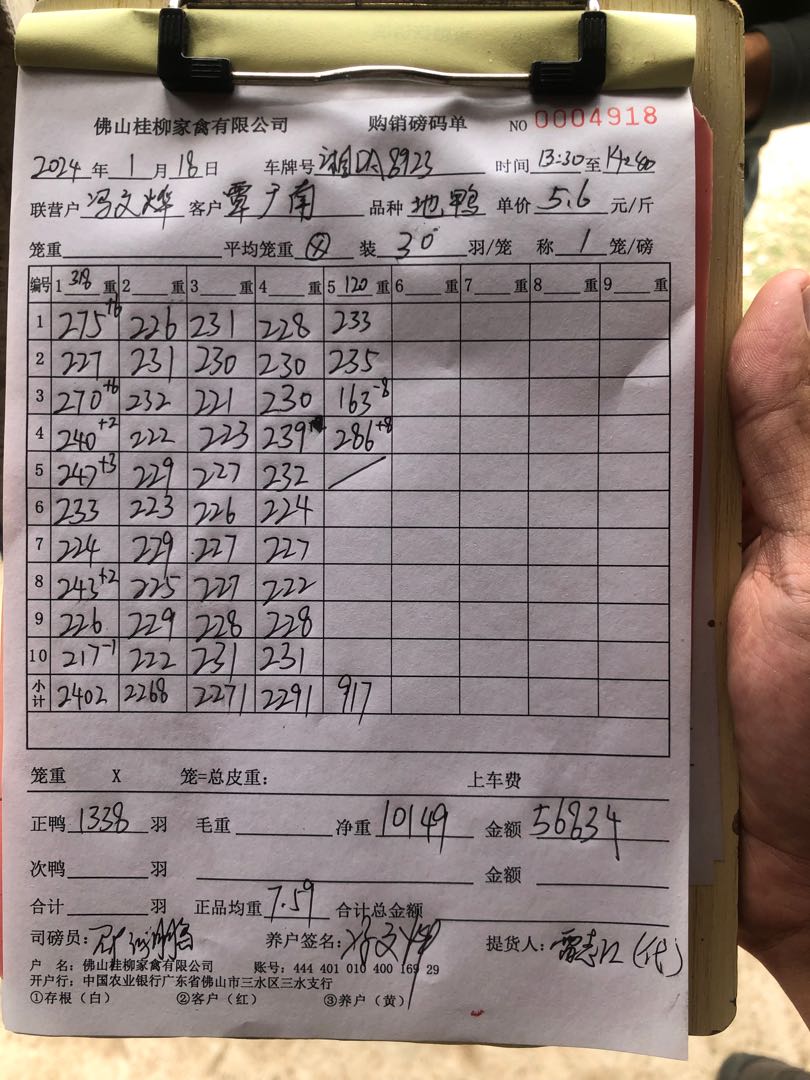 佛山桂柳家禽有限公司 购销磅码单 NO 0004918
2024 年 1 月 18 日 车牌号 湘DA8923 时间 13:30 至 14:40
联营户 冯文烨 客户 覃广南 品种 地鸭 单价 5.6 元/斤
笼重 平均笼重 ⊗ 装 30 羽/笼 称 1 笼/磅
编号 1 318 重 2 重 3 重 4 重 5 120 重 6 重 7 重 8 重 9 重
1 275+6 226 231 228 233
2 227 231 230 230 235
3 270+6 232 221 230 163-8
4 240+2 222 223 239 286+8
5 247+3 229 227 232 /
6 233 223 226 224
7 224 229 227 227
8 243+2 225 227 222
9 226 229 228 228
10 217-1 222 231 231
小计 2402 2268 2271 2291 917
笼重 X 笼=总皮重: 上车费
正鸭 1338 羽 毛重 净重 10149 金额 56834
次鸭 羽 金额
合计 羽 正品均重 7.59 合计总金额
司磅员: 养户签名: 冯文烨 提货人: 雷志江(代)
户 名: 佛山桂柳家禽有限公司 账号: 444 401 010 400 169 29
开户行: 中国农业银行广东省佛山市三水区三水支行
①存根(白) ②客户(红) ③养户(黄)